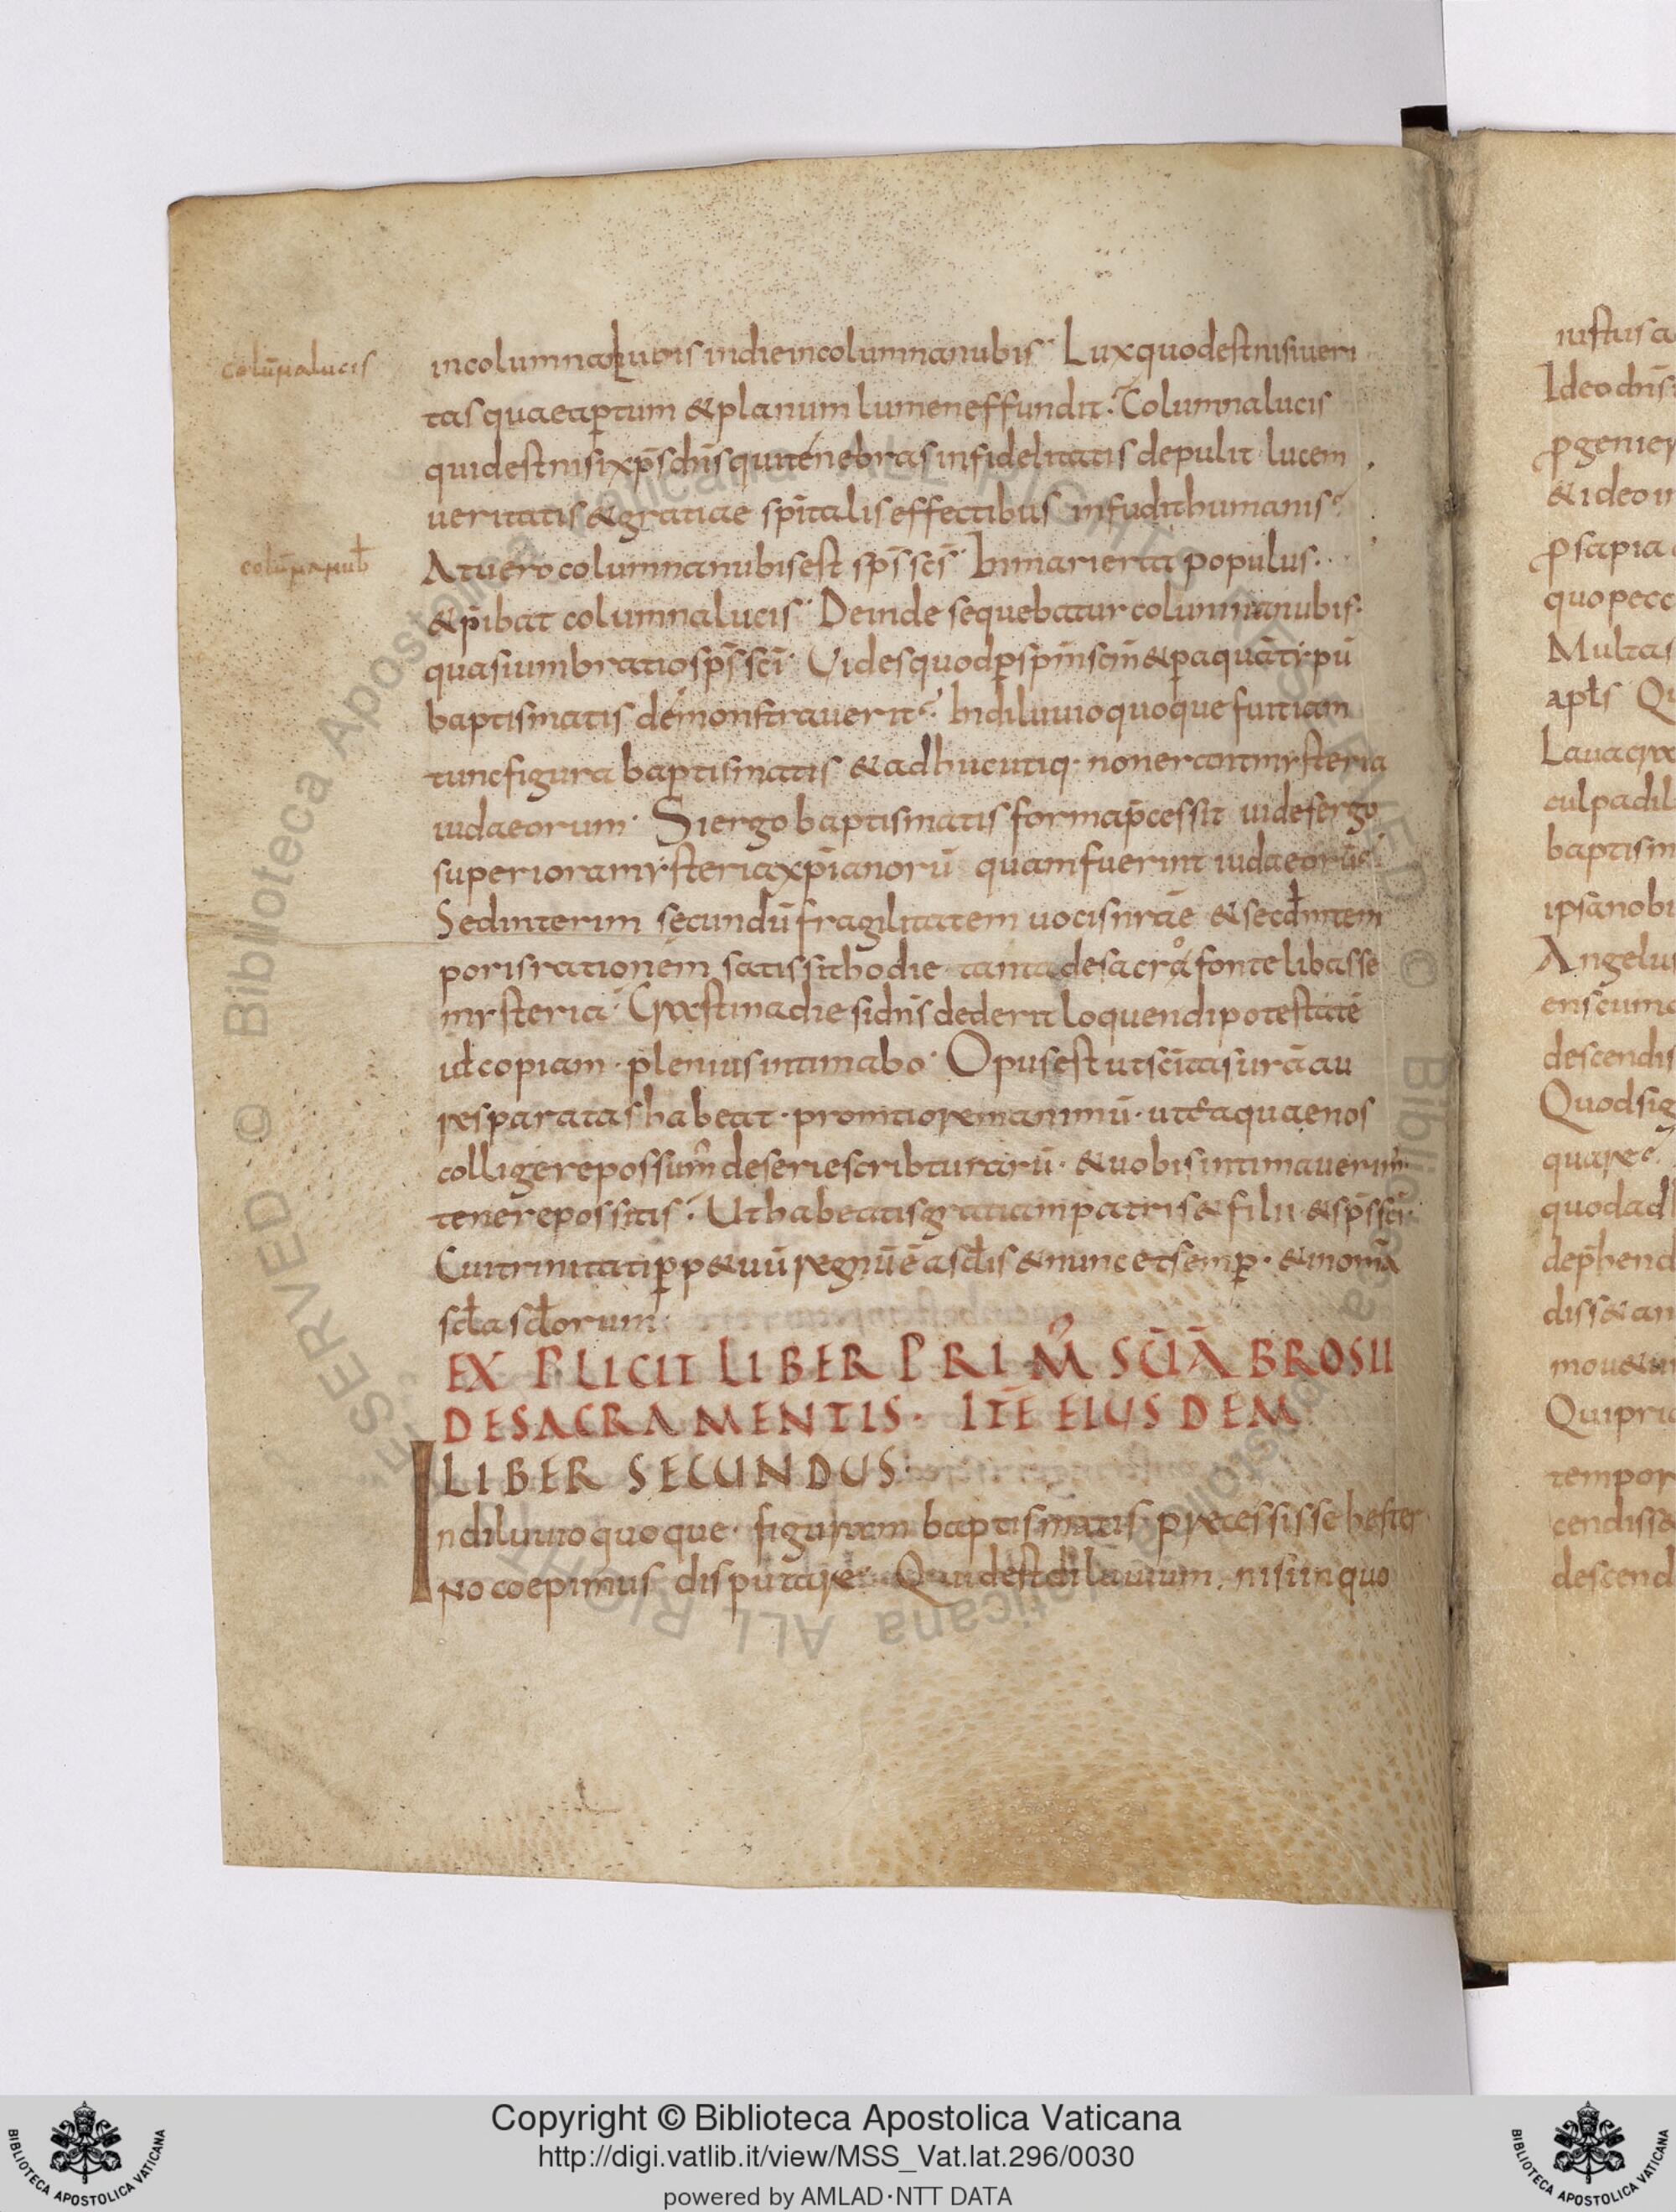 colūnalucis
incolumna lubis indie incolumna nubis Lux quod est nisi ueri
tas quae aptum & planum lumen effundit. Columna lucis
quid est nisi xp̄s dn̄s qui tenebras infidelitatis depulit lucem
ueritatis & gratiae spītalis effectibus infudit humanis
colūnanub̄
At uero columna nubis est sp̄s sc̄s In mari erat populus.
& p̄ibat columna lucis Deinde sequebatur columna nubis.
quasi umbratio sp̄s sc̄i. Uides quod p̲ sp̄m sc̄m & p̲ aquā typū
baptismatis demonstrauerit. In diluuio quoque fuit iam
tunc figura baptismatis & adhuc utiq· non erant mysteria
iudaeorum. Si ergo baptismatis forma p̄cessit uides ergo
superiora mysteria xp̄ianorū quam fuerint iudaeorū
Sed interim secundū fragilitatem uocis nr̄ae & secd̄m tem
poris rationem satis sit hodie tanta de sacro fonte libasse
mysteria. Crastina die si dn̄s dederit loquendi potestatē
ut copiam. plenius intimabo. Opus est ut sc̄itas ur̄a au
res paratas habeat. promtiorem animū. ut ea quae nos
colligere possum̄ de serie scribturarū. & uobis intimauerim̄
tenere possitis. Ut habeatis gratiam patris & filii & sp̄s sc̄i.
Cui trinitati p̲p&uū regnū ē a scl̄is & nunc et semp̲. & in omā
scl̄a scl̄orum
EX PLICIT LIBER PRIM̄ SC̄I Ā BROSII
DE SACRAMENTIS. ITĒ EIUSDEM
LIBER SECUNDUS
In diluuio quoque. figuram baptismatis precessisse hester
no coepimus disputare. Quid est diluuium. nisi in quo
iustus a
Ideo dn̄s
p̲genier
& ideo
p̲sapia
quo pecc
Multas
apl̄s Qu
Lauacra
culpa dil
baptism
ipsā nobi
Angelu
descendis
Quod sig
quare
quod ad
dep̄hend
diss& an
Qui pri
tempor
cendiss&
descend
© Biblioteca Apostolica Vaticana ALL RIGHTS RESERVED © Biblioteca Apostolica Vaticana ALL RIGHTS RESERVED
Copyright © Biblioteca Apostolica Vaticana
http://digi.vatlib.it/view/MSS_Vat.lat.296/0030
powered by AMLAD·NTT DATA
BIBLIOTECA APOSTOLICA VATICANA
BIBLIOTECA APOSTOLICA VATICANA